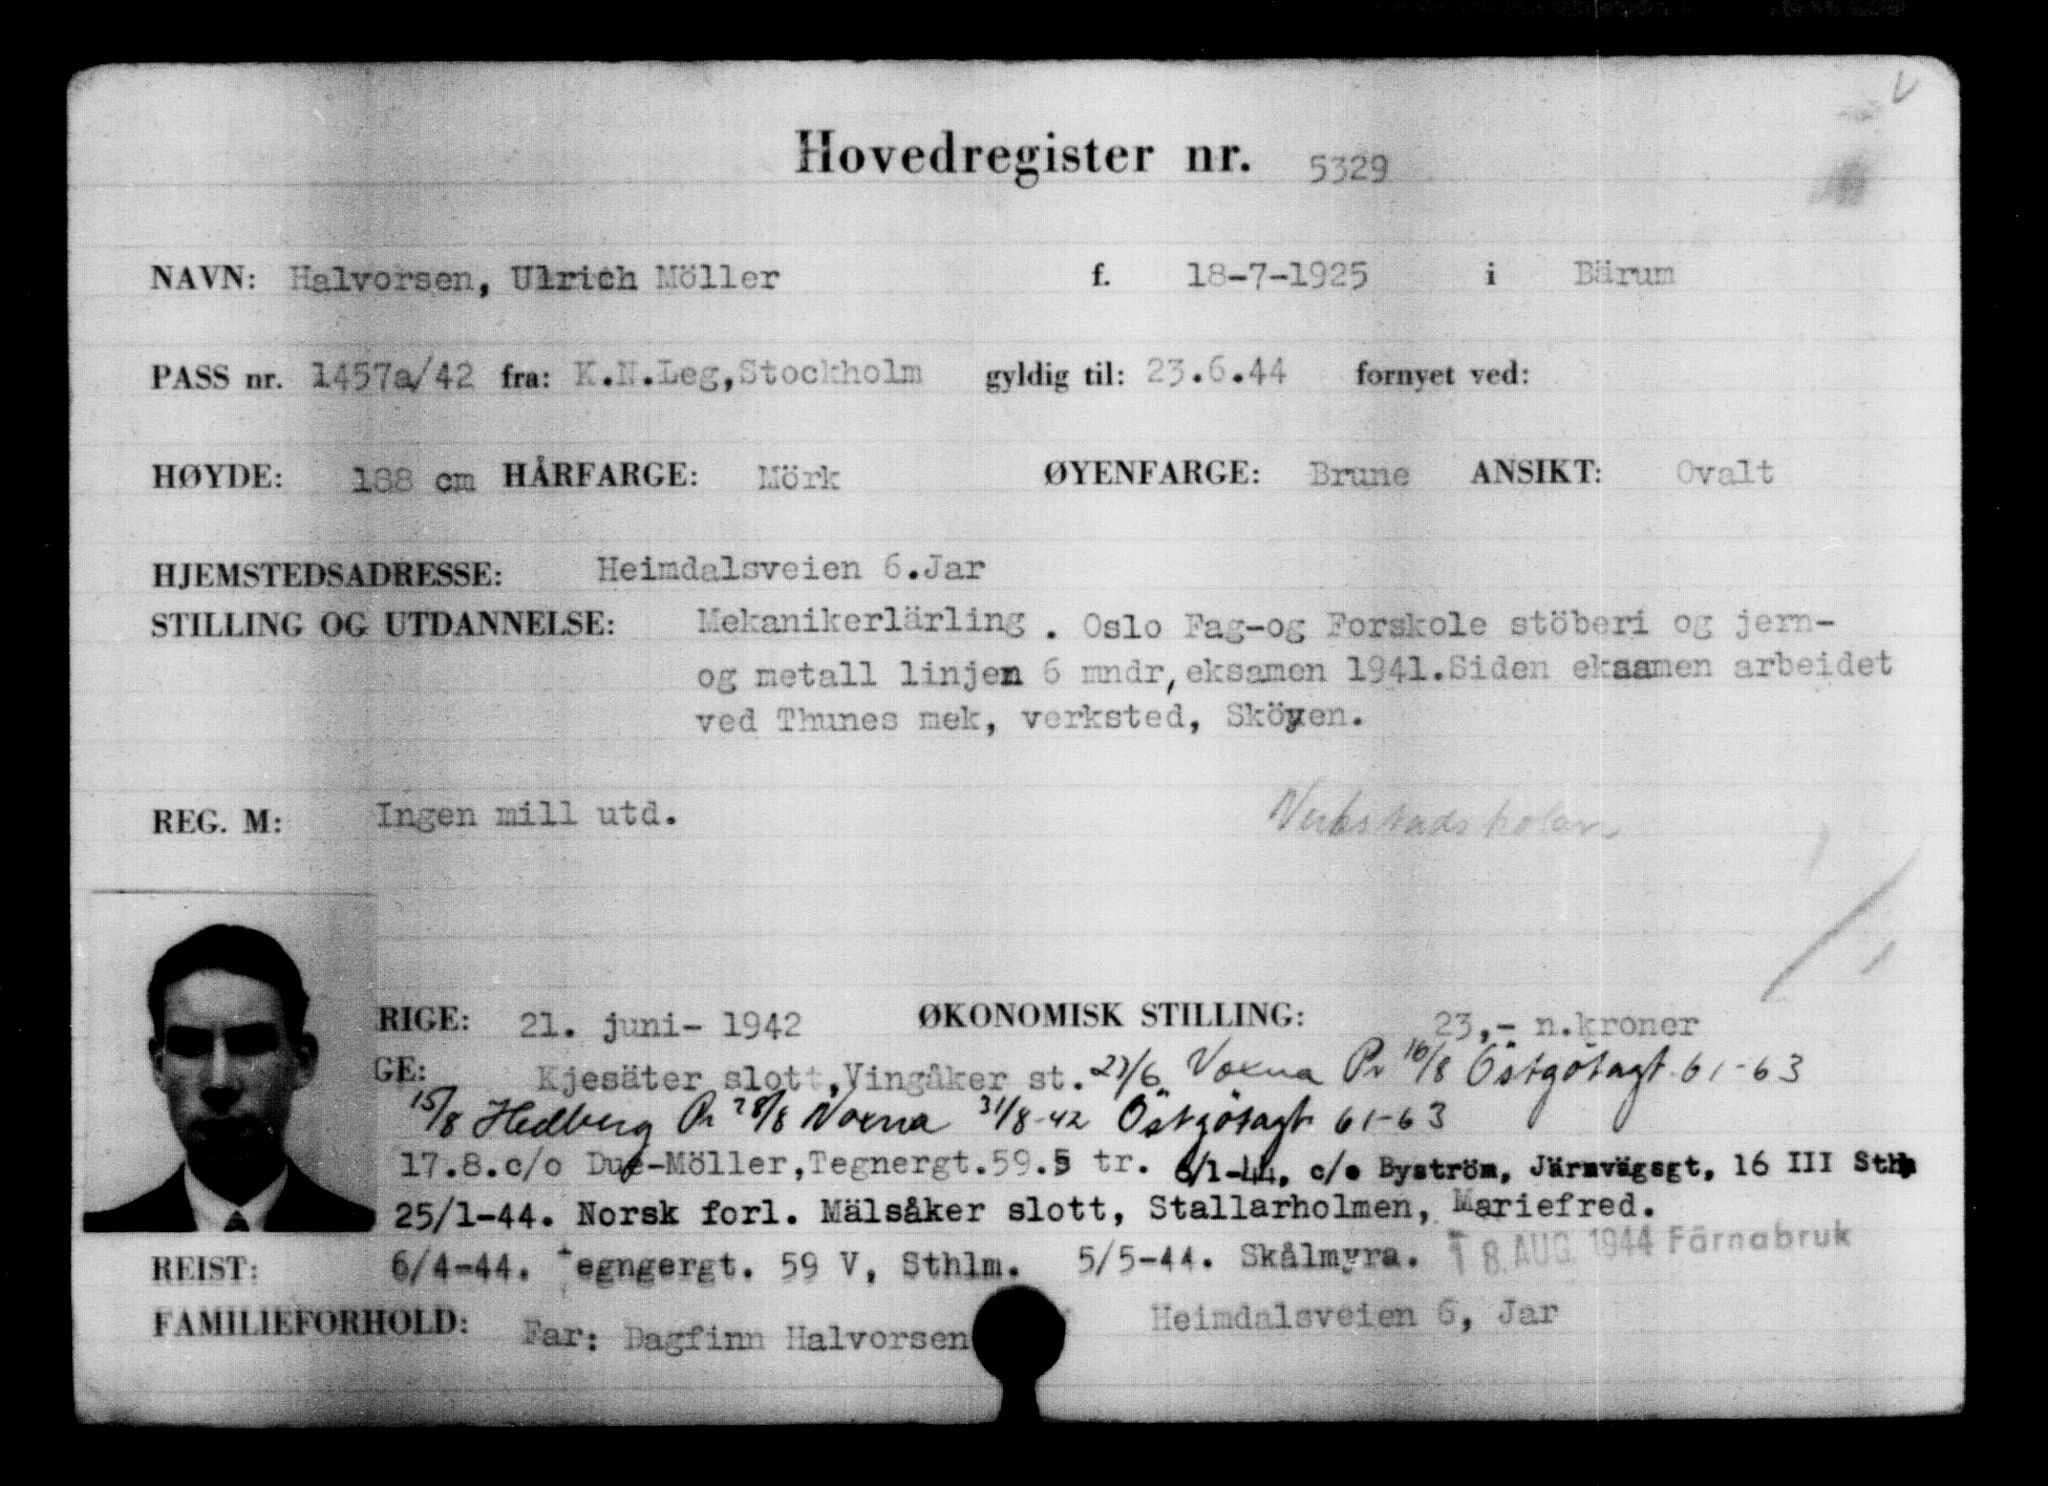 Hovedregister nr. 5329
NAVN: Halvorsen, Ulrich Möller f. 18-7-1925 i Bärum
PASS nr. 1457a/42 fra: K.N.Leg,Stockholm gyldig til: 23.6.44 fornyet ved:
HØYDE: 188 cm HÅRFARGE: Mörk ØYENFARGE: Brune ANSIKT: Ovalt
HJEMSTEDSADRESSE: Heimdalsveien 6.Jar
STILLING OG UTDANNELSE: Mekanikerlärling . Oslo Fag-og Forskole stöberi og jern-
og metall linjen 6 mndr,eksamen 1941.Siden eksamen arbeidet
ved Thunes mek, verksted, Sköyen.
REG. M: Ingen mill utd.
RIGE: 21. juni- 1942 ØKONOMISK STILLING: 23,- n.kroner
GE: Kjesäter slott,Vingåker st. 27/6 Voxna Pr 16/8 Östgötagt 61-63
15/8 Hedberg Pr 28/8 Voxna 31/8-42 Östgötagt 61-63
17.8.c/o Due-Möller,Tegnergt.59.5 tr. 6/1-44, c/o Byström, Järnvägsgt, 16 III Sthm
25/1-44. Norsk forl. Mälsåker slott, Stallarholmen, Mariefred.
REIST: 6/4-44. egngergt. 59 V, Sthlm. 5/5-44. Skålmyra. 18 AUG. 1944 Färnabruk
FAMILIEFORHOLD: Far: Dagfinn Halvorsen Heimdalsveien 6, Jar